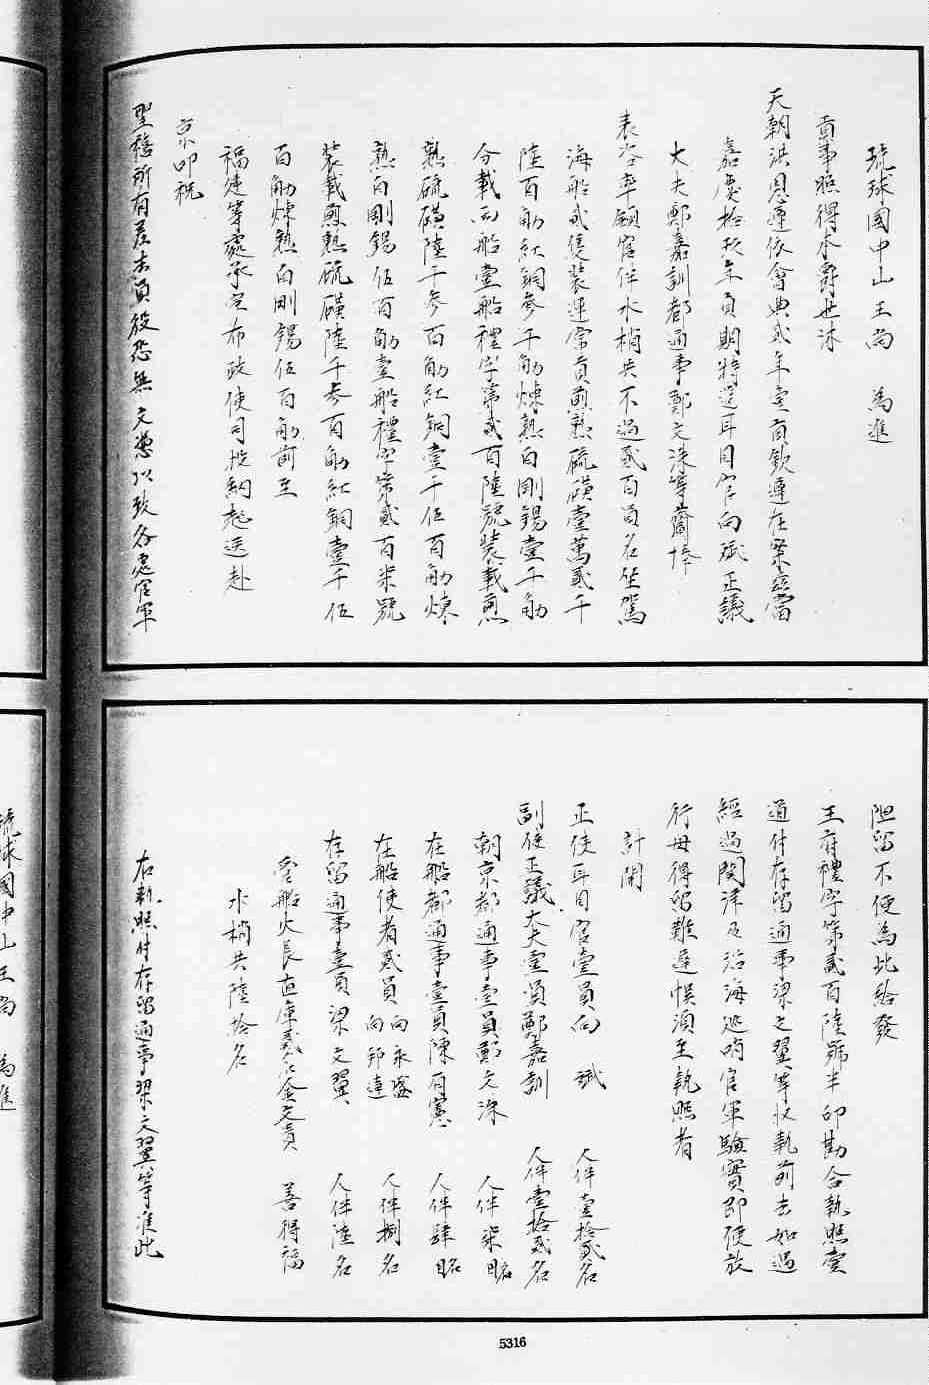 琉球國中山王尚　為進
貢事照得本爵世沐
天朝洪恩遵依會典貳年壹貢欽遵在案茲當
嘉慶拾玖年貢期特遣耳目官向斌正議
大夫鄭嘉訓都通事鄭文洙等齎捧
表咨率領官伴水梢共不過貳百員名坐駕
海船貳隻裝運常貢煎熟硫磺壹萬貳千
陸百觔紅銅參千觔煉熟白剛錫壹千觔
分載兩船壹船禮字第貳百陸號裝載煎
熟硫磺陸千參百觔紅銅壹千伍百觔煉
熟白剛錫伍百觔壹船禮字第貳百柒號
裝載煎熟硫磺陸千參百觔紅銅壹千伍
百觔煉熟白剛錫伍百觔前至
福建等處承宣布政使司投納起送赴
京叩祝
聖禧所有差去員役恐無文憑以致各處官軍
阻留不便為此給發
王府禮字第貳百陸號半印勘合執照壹
道付存留通事梁文翼等收執前去如遇
經過關津及沿海巡哨官軍驗實即便放
行毋得留難遲悞須至執照者
計開
正使耳目官壹員向　斌　人伴壹拾貳名
副使正議大夫壹員鄭嘉訓　人伴壹拾貳名
朝京都通事壹員鄭文洙　人伴柒名
在船都通事壹員陳有憲　人伴肆名
在船使者貳員向永盛　向邦達　人伴捌名
存留通事壹員梁文翼　人伴陸名
管船火長直庫貳名金文貴　善得福
水梢共陸拾名
右執照付存留通事梁文翼等准此
琉球國中山王尚　為進
5316